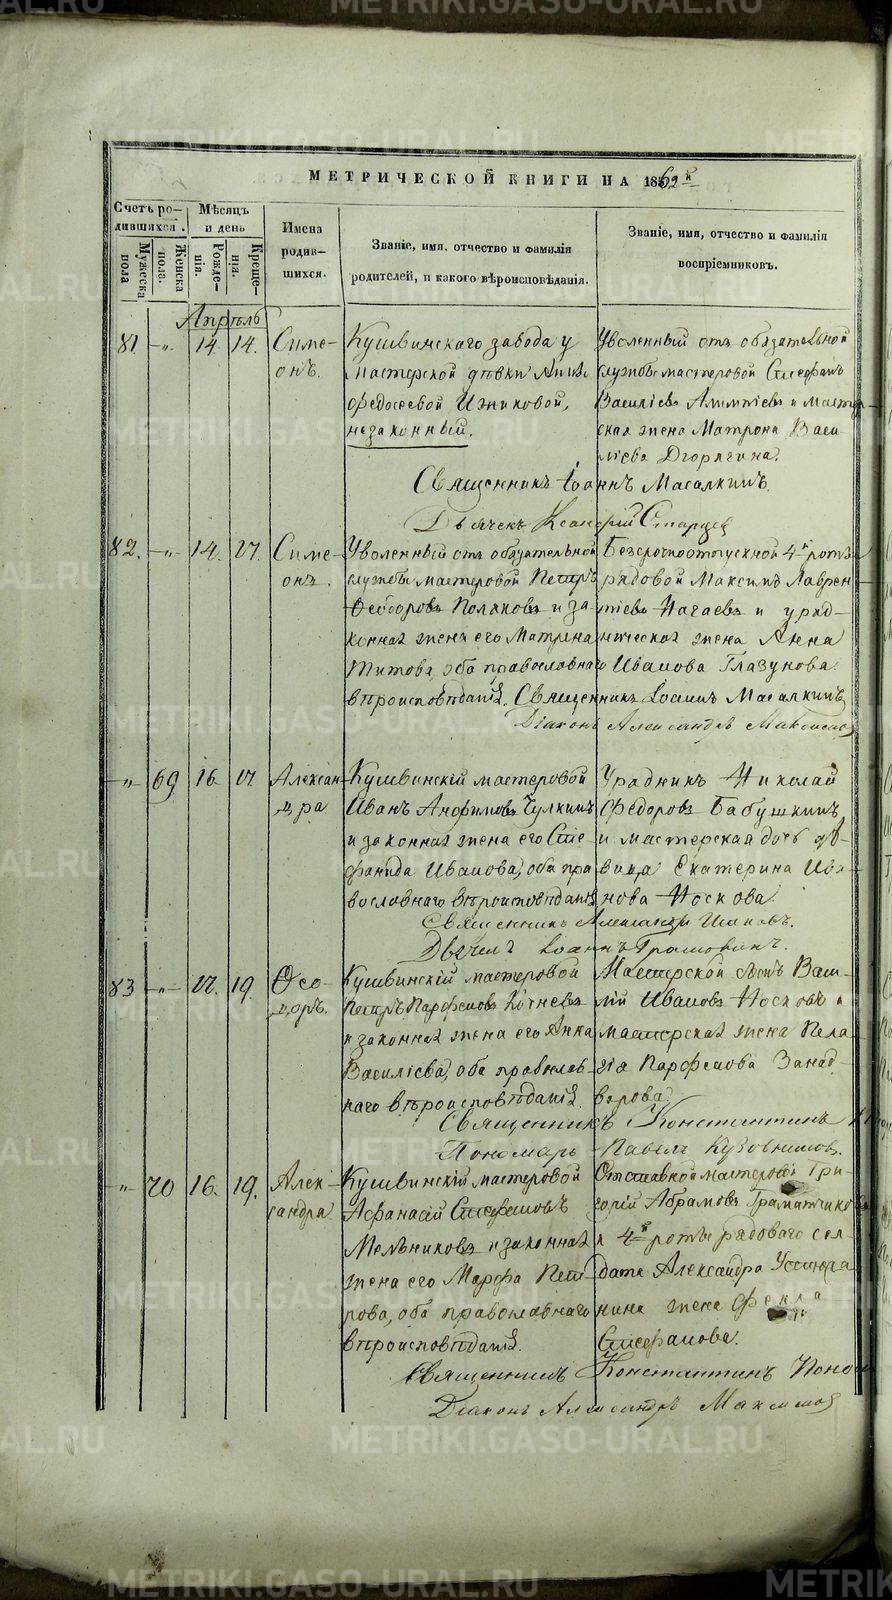 МЕТРИЧЕСКОЙ КНИГИ НА 1862 й
Счетъ родившихся.
Мужеска пола
Женска пола.
Мѣсяцъ и день
Рожденія.
Крещенія.
Имена родившихся.
Званіе, имя, отчество и фамилія родителей, и какого вѣроисповѣданія.
Званіе, имя, отчество и фамилія воспріемниковъ.
Апрѣль
81. -"- 14. 14. Симеонъ.
Кушвинскаго завода у
мастерской дѣвки
Ѳедосеевой
незаконный.
Уволенный отъ обязательной
службы мастеровой Стефанъ
Василіевъ и мастерская жена Матрона Василіева
Священникъ Іоаннъ Масалкинъ.
Дьячекъ
82. -"- 14. 17. Симеонъ.
Уволенный отъ обязательной
службы мастеровой Петръ
Ѳеодоровъ Поляковъ и законная жена его Матрена
Титова, оба православнаго
вѣроисповѣданія.
Безсрочноотпускной 4й роты
рядовой Максимъ Лаврентіевъ Нагаевъ и урядническая жена Анна
Иванова Глазунова.
Священникъ Іоаннъ Масалкинъ
Діаконъ Александръ
-"- 69 16. 17 Александра
Кушвинскій мастеровой
Иванъ Анфимовъ Чулкинъ
и законная жена его Стефанида Иванова, оба православнаго вѣроисповѣданія.
Урядникъ Николай
Ѳедоровъ Бабушкинъ
и мастерская дочь дѣвица Екатерина Иванова Носкова.
Священникъ Александръ
Дьячекъ Іоаннъ
83 -"- 17. 19. Ѳеодоръ.
Кушвинскій мастеровой
Петръ Парфеновъ
и законная жена его Анна
Василіева, оба православнаго вѣроисповѣданія.
Мастерской сынъ Василій Ивановъ Носковъ и
мастерская жена Пелагія Парфенова
Священникъ Константинъ
Пономарь Павелъ
-"- 70 16. 19. Александра
Кушвинскій мастеровой
Аѳанасій Стефановъ
Мельниковъ и законная
жена его Марфа Петрова, оба православнаго
вѣроисповѣданія.
Отставной мастеровой Григорій Абрамовъ
и 4й роты рядоваго солдата Александра
жена Фекла
Стефанова.
Священникъ Константинъ
Діаконъ Александръ
METRIKI.GASO-URAL.RU